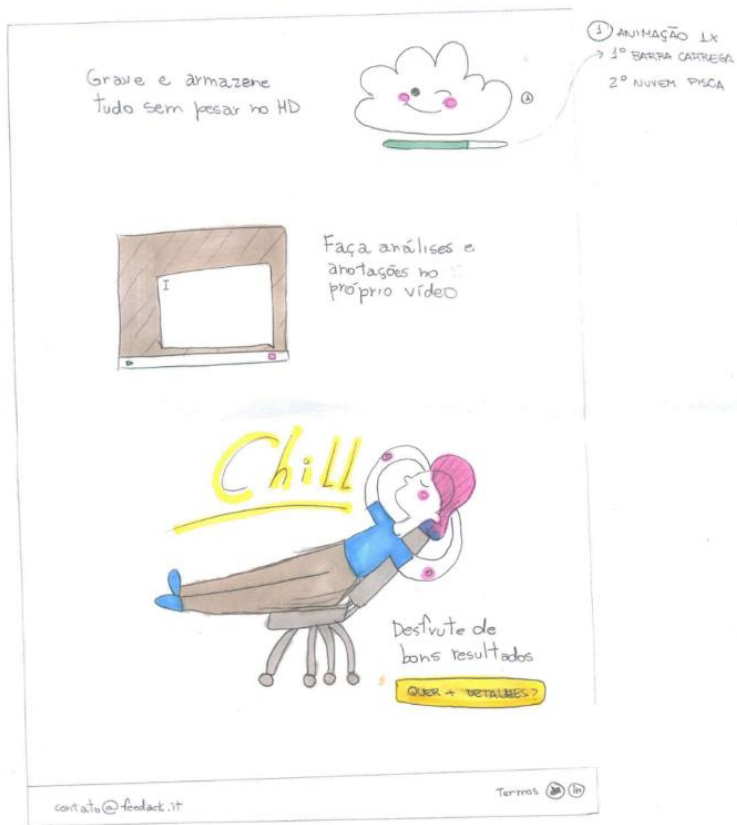 Grave e armazene
tudo sem pesar no HD
1
1 ANIMAÇÃO 1X
→ 1º BARRA CARREGA
2º NUVEM PISCA
Faça análises e
anotações no
próprio vídeo
I
Chill
Desfrute de
bons resultados
QUER + DETALHES?
contato@feedack.it
Termos
in